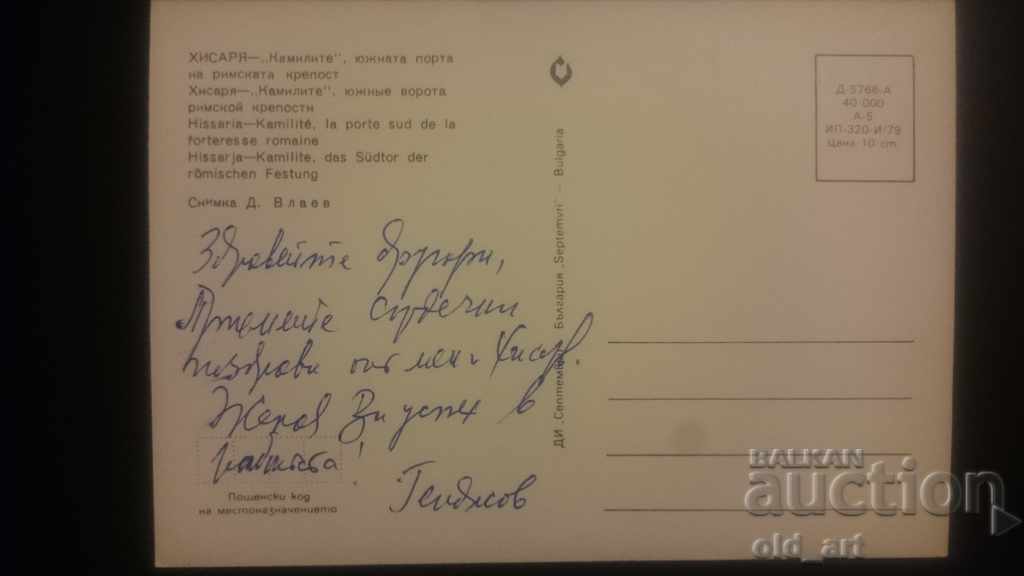 ХИСАРЯ—„Камилите", южната порта
на римската крепост
Хисаря—„Камилите", южные ворота
римской крепости
Hissaria—Kamilité, la porte sud de la
forteresse romaine
Hissarja—Kamilite, das Südtor der
römischen Festung
Снимка Д. Влаев
Здравейте другари,
Приемете сърдечни
поздрави от мен и Хисаря.
Желая Ви успех в
работата!
Генджов
Пощенски код
на местоназначението
ДИ „Септември" България „Septemvri" — Bulgaria
Д-5766-А
40 000
А-6
ИП-320-И/79
Цена 10 ст.
BALKAN
auction
old_art